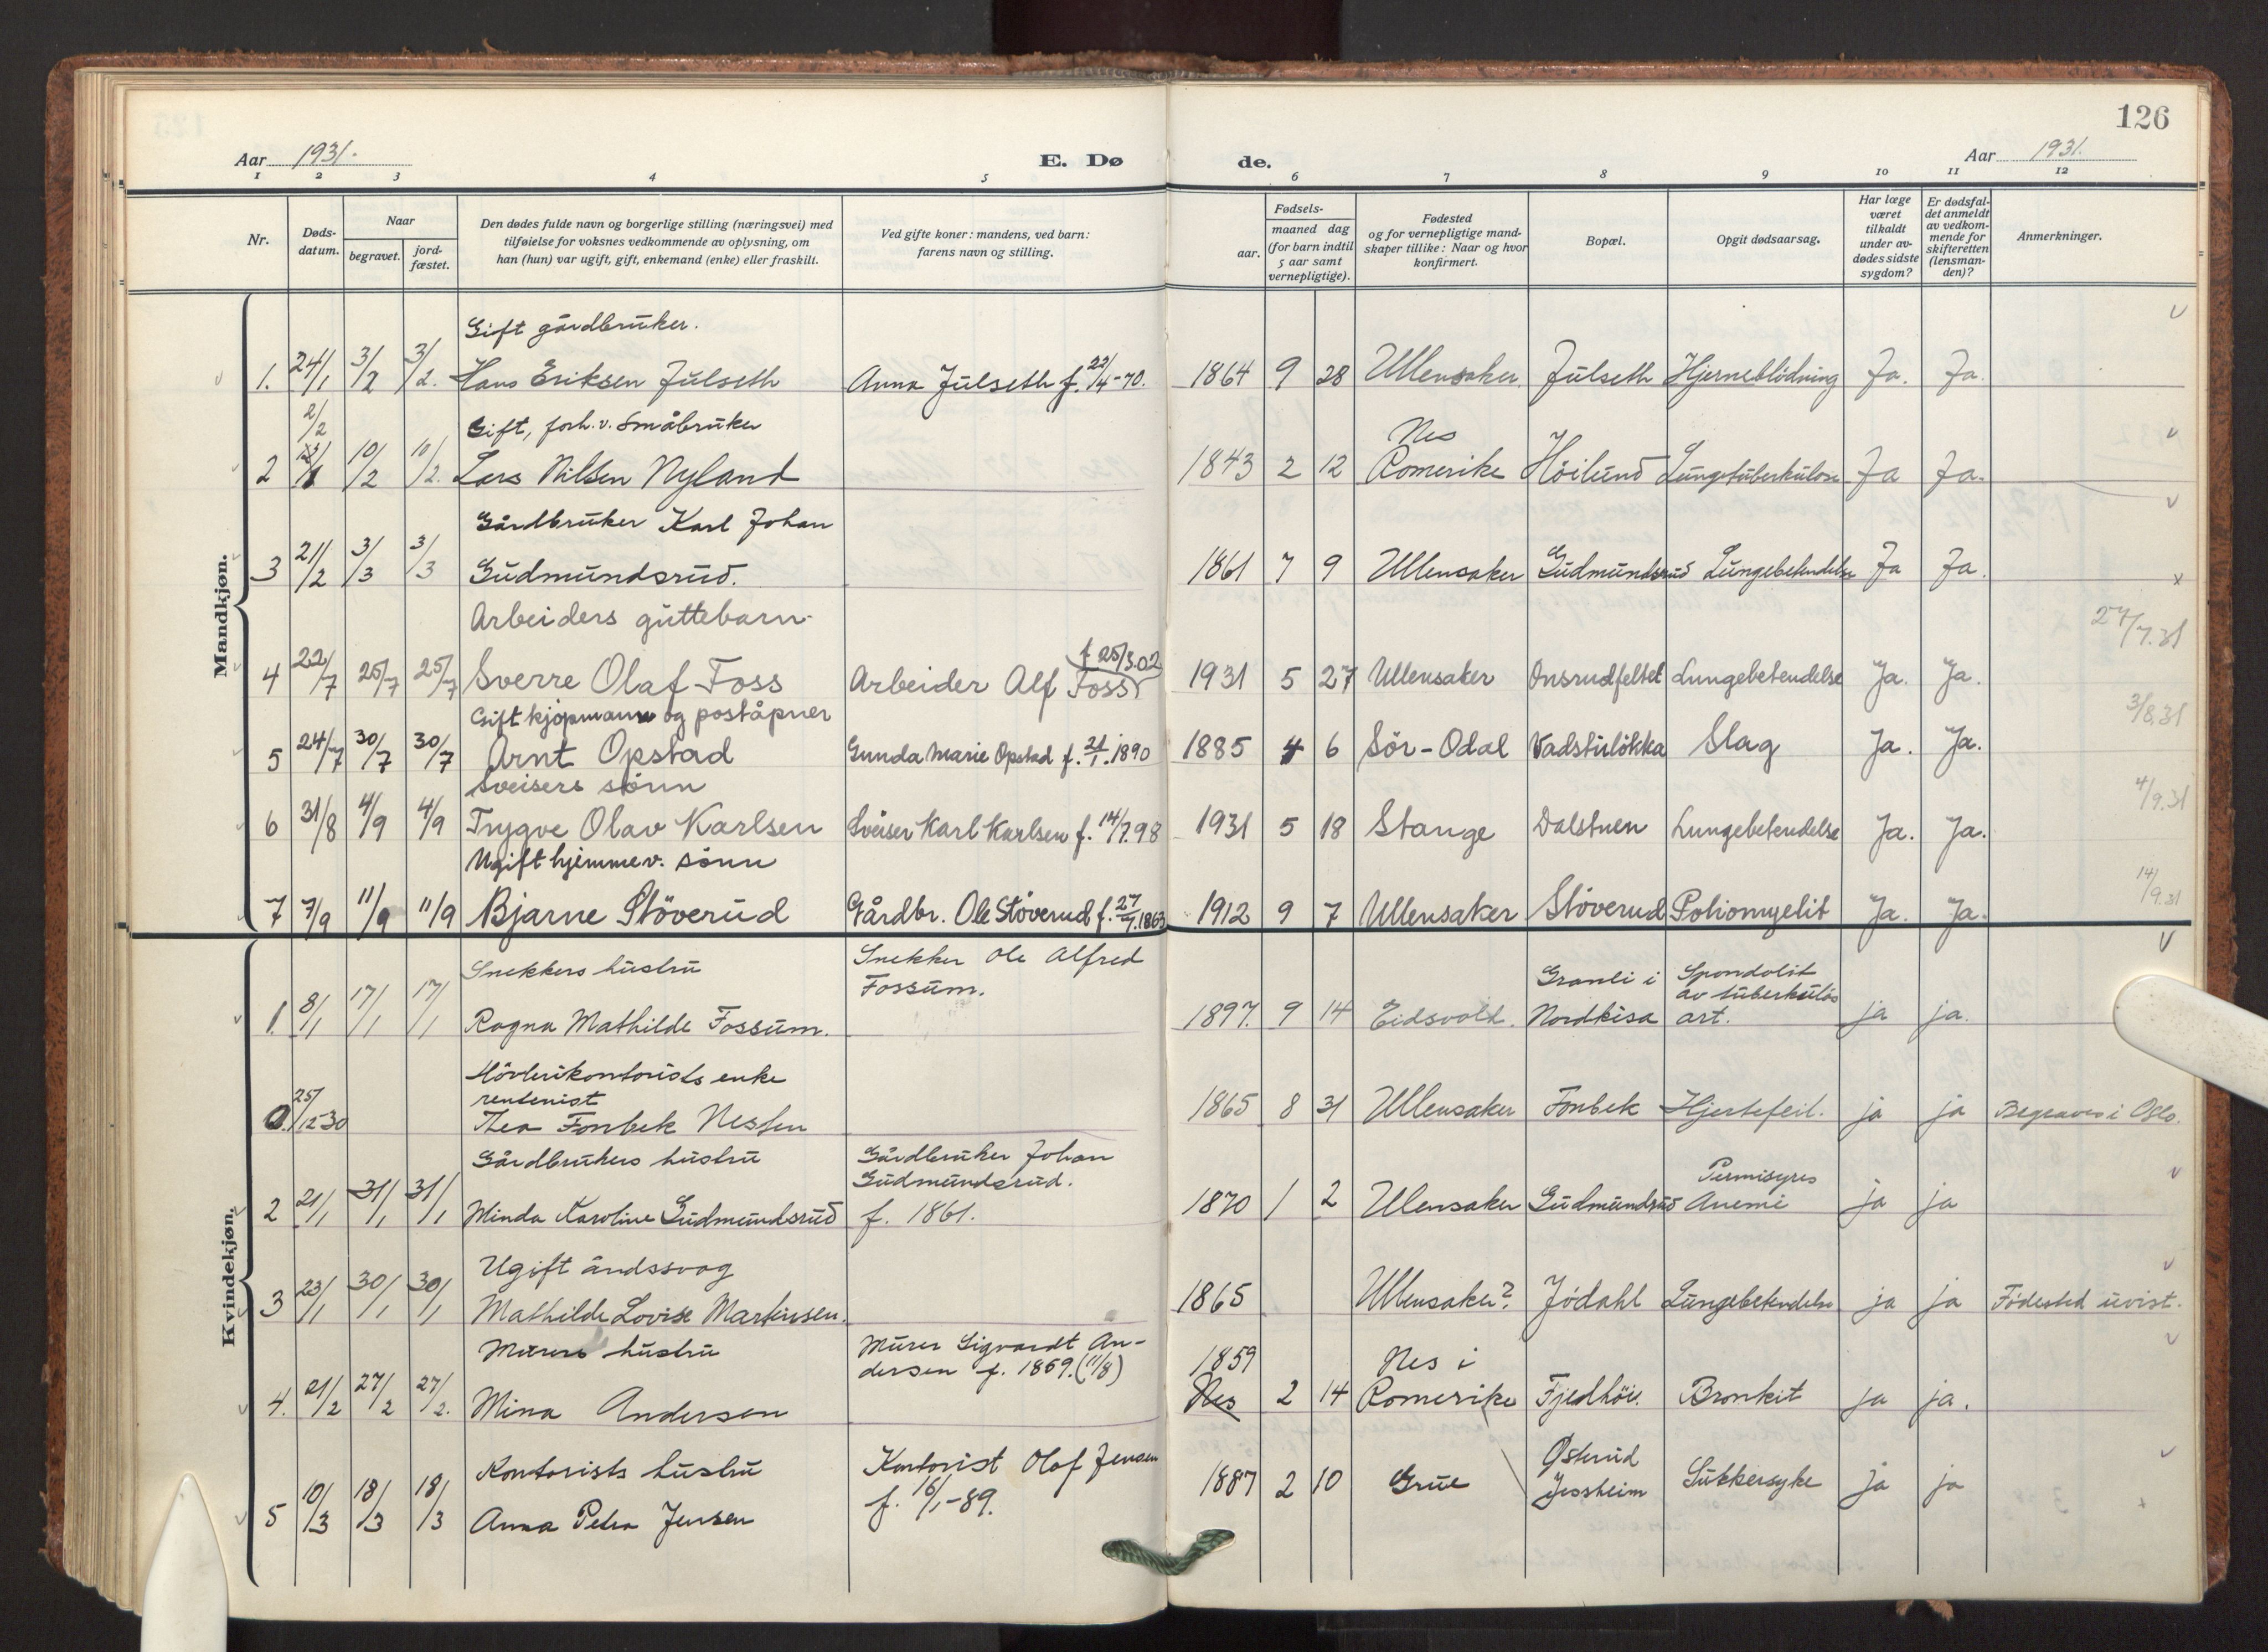 126
Aar 1931.
E. Dø de.
Aar 1931.
1 2 3 4 5 6 7 8 9 10 11 12
Nr.
Døds-
datum.
Naar
begravet.
jord-
fæstet.
Den dødes fulde navn og borgerlige stilling (næringsvei) med
tilføielse for voksnes vedkommende av oplysning, om
han (hun) var ugift, gift, enkemand (enke) eller fraskilt.
Ved gifte koner: mandens, ved barn:
farens navn og stilling.
Fødsels-
aar.
maaned dag
(for barn indtil
5 aar samt
vernepligtige).
Fødested
og for vernepligtige mand-
skaper tillike: Naar og hvor
konfirmert.
Bopæl.
Opgit dødsaarsag.
Har læge
været
tilkaldt
under av-
dødes sidste
sygdom?
Er dødsfal-
det anmeldt
av vedkom-
mende for
skifteretten
(lensman-
den)?
Anmerkninger.
Mandkjøn.
Gift gårdbruker.
1. 24/1 3/2 3/2. Hans Eriksen Julseth Anna Julseth f. 22/4-70. 1864 9 28 Ullensaker. Julseth Hjerneblödning Ja. Ja.
2/2 Gift, forh. v. Småbruker Nes
2 10/2 11/2. Lars Nilsen Nyland 1843 2 12 Romerike Höilund Lungetuberkulose Ja Ja.
Gårdbruker Karl Johan
3 21/2 3/3 3/3 Gudmundsrud. 1861 7 9 Ullensaker Gudmundsrud Lungebetendelse Ja Ja.
Arbeiders guttebarn. 27/7.31
f 25/3.02
4 22/7 25/7 25/7 Sverre Olaf Foss Arbeider Alf Foss 1931 5 27 Ullensaker Onsrudfeltet Lungebetendelse Ja. Ja.
Gift kjøpmann og poståpner 3/8.31
5 24/7 30/7 30/7 Arnt Opstad Gunda Marie Opstad f. 21/1.1890 1885 4 6 Sör-Odal Vadstulökka Slag Ja. Ja.
Sveisers sönn 4/9.31
6 31/8 4/9 4/9 Trygve Olav Karlsen Sveiser Karl Karlsen f. 14/7.98 1931 5 18 Stange Dalstuen Lungebetendelse Ja. Ja.
Ugift hjemmev. sönn 14/9.31
7 7/9 11/9 11/9 Bjarne Stöverud Gårdbr. Ole Stöverud f. 27/7.1863 1912 9 7 Ullensaker Stöverud Poliomyelit Ja. Ja.
Kvindekjøn.
Snekkers hustru Snekker Ole Alfred
Fossum. Granli i Spondolit
av tuberkulös
1. 8/1 17/1 17/1 Ragna Mathilde Fossum. 1897. 9 14 Eidsvold. Nordkisa art. ja ja.
Hövlerikontorists enke
rentenist
0. 25/12-30 Thea Fonbek Nesten 1865 8 31 Ullensaker Fonbek Hjertefeil. ja ja Begraves i Oslo.
Gårdbrukers hustru Gårdbruker Johan
Gudmundsrud. Pernisyres
2 21/1 31/1 31/1 Minda Karoline Gudmundsrud f. 1861. 1870 1 2 Ulensaker Gudmundsrud Anemi ja ja
Ugift åndssvag
3 23/1 30/1 30/1 Mathilde Lovise Martinsen. 1865 Ullensaker? Jödahl Lungebetendelse ja ja Födested uvist.
Murers hustru Murer Sigvardt An-
dersen f. 1859. (11/8) 1859 Nes i
4. 21/2 27/2 27/2. Mina Andersen Nes 2 14 Romerike Fjedhöi. Bronkit ja ja.
Kontorists hustru Kontorist Olof Jensen Østerud
5 10/3 18/3 18/3 Anna Petra Jensen f. 16/1-89. 1887 2 10 Grue Jessheim Sukkersyke ja ja